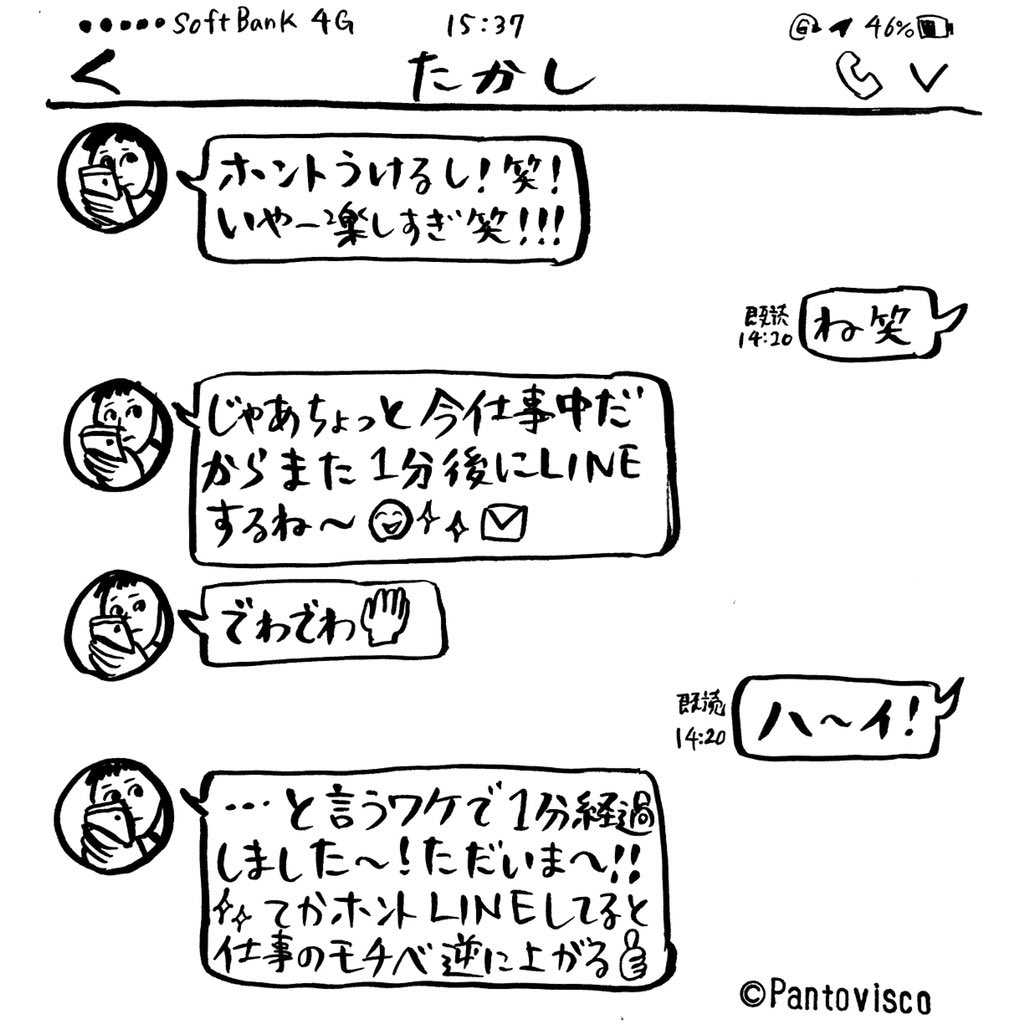 SoftBank 4G 15:37 46%
たかし
ホントうけるし!笑!
いやー楽しすぎ笑!!!
既読
14:20
ね笑
じゃあちょっと今仕事中だ
からまた1分後にLINE
するね〜
でわでわ
既読
14:20
ハ〜イ!
…と言うワケで1分経過
しました〜!ただいま〜!!
てかホントLINEしてると
仕事のモチベ逆に上がる
©Pantovisco